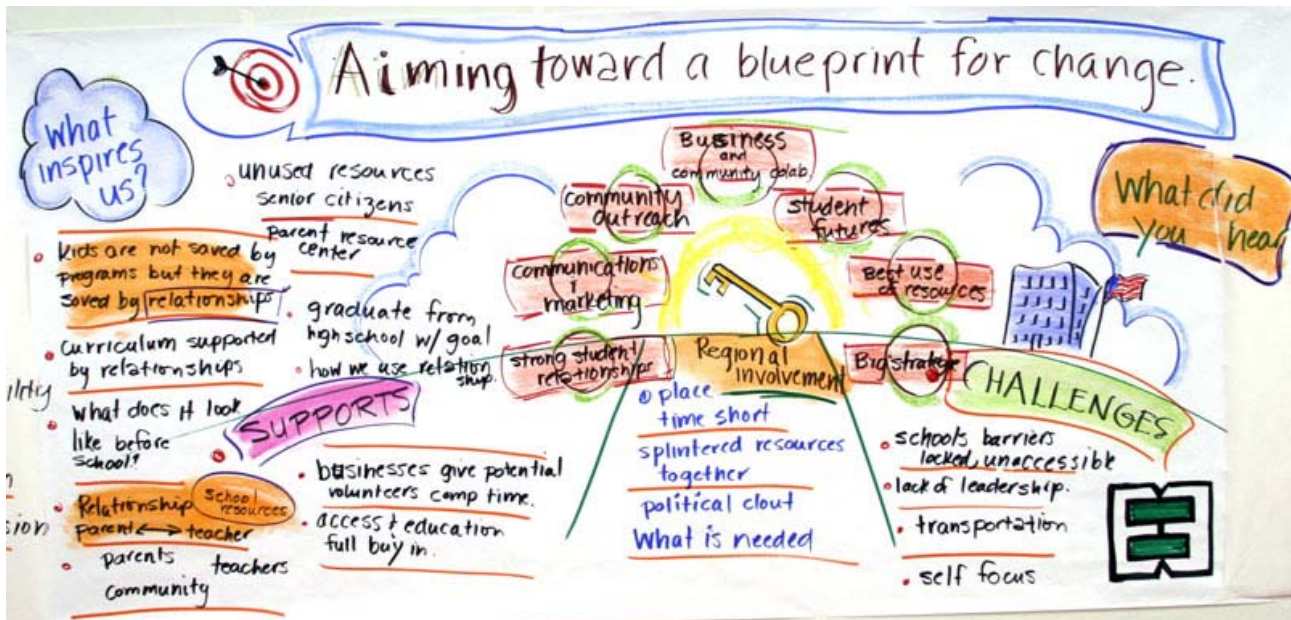 Aiming toward a blueprint for change.
What
inspires
us?
unused resources
senior citizens
parent resource
center
kids are not saved by
programs but they are
saved by relationships
curriculum supported
by relationships
what does it look
like before
school?
Relationship
school
resources
parent ↔ teacher
parents teachers
community
graduate from
high school w/ goal
how we use relation
ship.
SUPPORTS
businesses give potential
volunteers comp time.
access & education
full buy in.
Business
and
community colab.
community
outreach
student
futures
communications
& marketing
Best use
of resources
strong student
relationships
Regional
involvement
Big strategy
place
time short
splintered resources
together
political clout
What is needed
What did
you hear
CHALLENGES
schools barriers
locked, unaccessible
lack of leadership.
transportation
self focus
sion